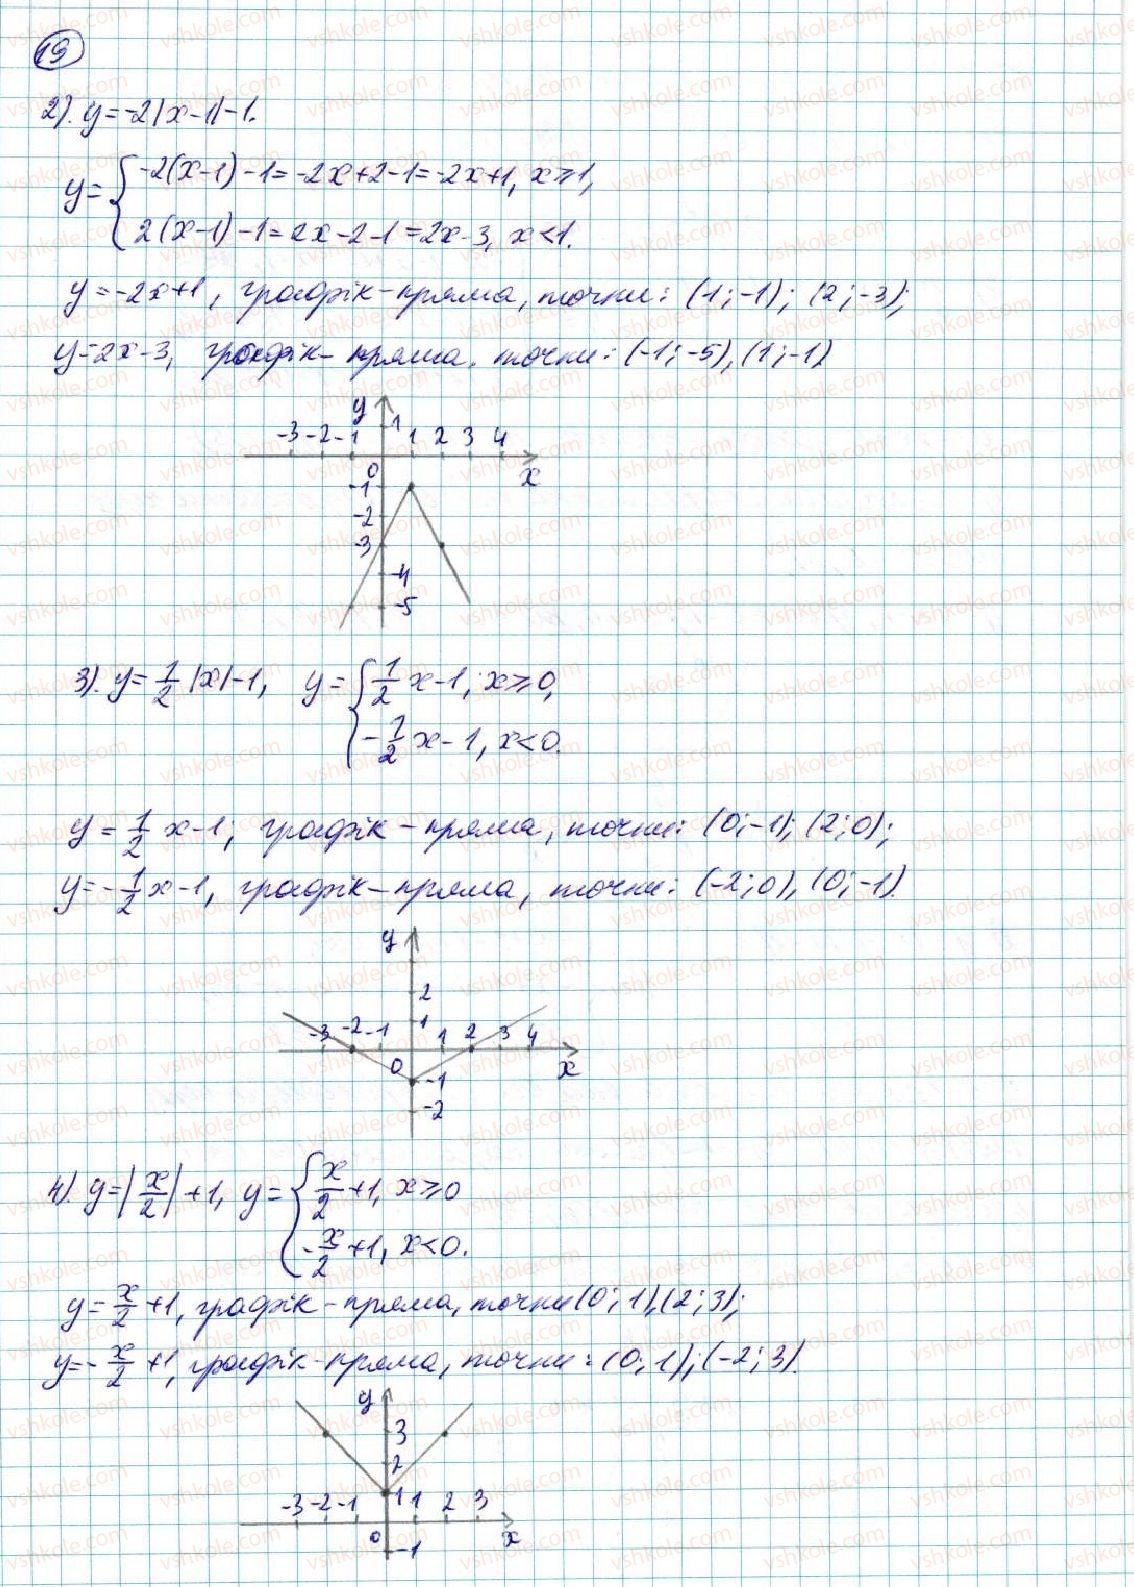 19
2). y=-2|x-1|-1.
y= { -2(x-1)-1=-2x+2-1=-2x+1, x≥1,
2(x-1)-1=2x-2-1=2x-3, x<1.
y=-2x+1, графік-пряма, точки: (1;-1); (2;-3);
y=2x-3, графік-пряма. точки: (-1;-5), (1;-1)
y 1
-3 -2 -1 1 2 3 4
0 x
-1
-2
-3
-4
-5
3). y=1/2|x|-1, y= { 1/2 x-1, x≥0,
-1/2 x-1, x<0.
y=1/2 x-1; графік-пряма, точки: (0;-1); (2;0);
y=-1/2 x-1, графік-пряма, точки: (-2;0), (0;-1).
y
2
1
-3 -2 -1 1 2 3 4
0 x
-1
-2
4). y=|x/2|+1, y= { x/2+1, x≥0
-x/2+1, x<0.
y=x/2+1, графік-пряма, точки (0;1), (2;3);
y=-x/2+1, графік-пряма, точки: (0;1); (-2;3).
y
3
2
-3 -2 -1 1 1 2 3
0 x
-1
vshkole.com